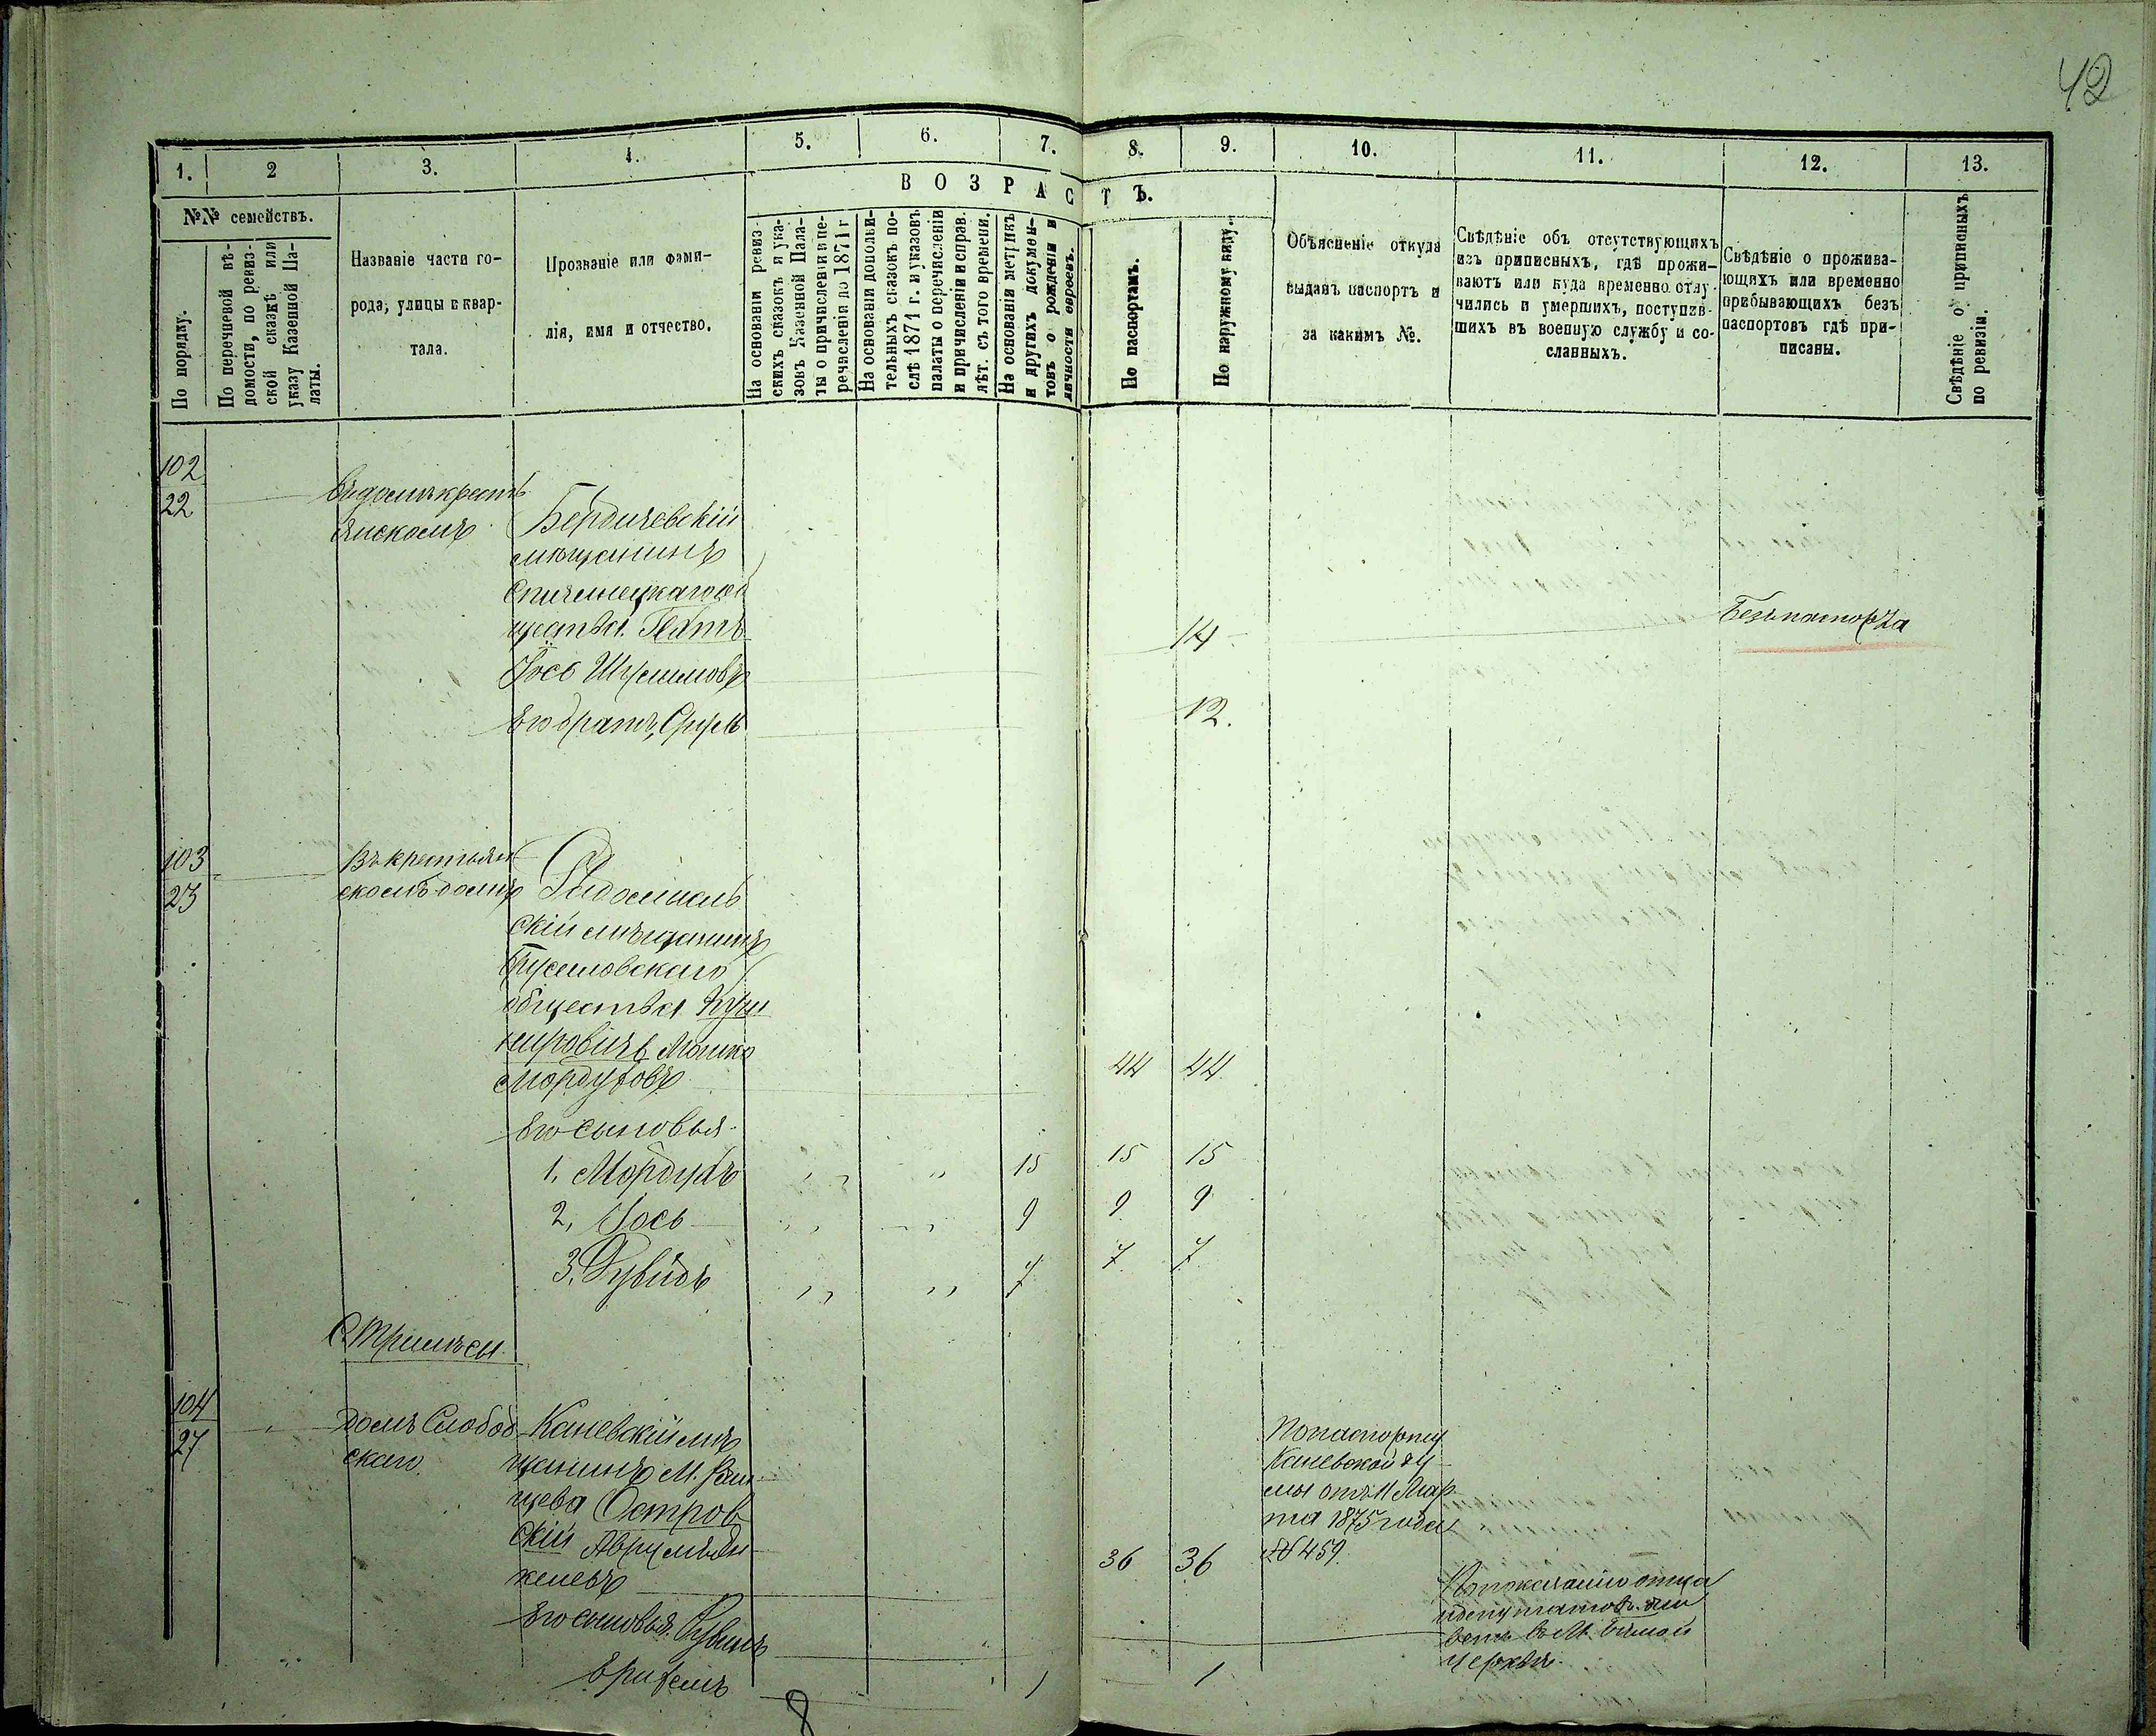 42
1.
2
3.
4.
5.
6.
7.
8.
9.
10.
11.
12.
13.
ВОЗРАСТЪ.
№№ семействъ.
По порядку.
По перечневой вѣ-
домости, по ревиз-
ской сказкѣ или
указу Казенной Па-
латы.
Названіе части го-
рода, улицы и квар-
тала.
Прозваніе или фами-
лія, имя и отчество.
На основаніи ревиз-
скихъ сказокъ и ука-
зовъ Казенной Пала-
ты о причисленіи и пе-
речисленія до 1871 г
На основаніи дополни-
тельныхъ сказокъ по-
слѣ 1871 г. и указовъ
палаты о перечисленіи
и причисленіи и справ.
лѣт. съ того времени.
На основаніи метрикъ
и другихъ докумен-
товъ о рожденіи и
личности евреевъ.
По паспортамъ.
По наружному виду.
Объясненіе откуда
выданъ паспортъ и
за какимъ №.
Свѣдѣніе объ отсутствующихъ
изъ приписныхъ, гдѣ прожи-
ваютъ или куда временно отлу-
чились и умершихъ, поступив-
шихъ въ военную службу и со-
сланныхъ.
Свѣдѣніе о прожива-
ющихъ или временно
прибывающихъ безъ
паспортовъ гдѣ при-
писаны.
Свѣдѣніе о приписныхъ
по ревизіи.
102
22
Въ домѣ крестъ
янскомъ
Бердичевскій
мѣщанинъ
Спичинецкаго об
щества
Іось
Его братъ, Сруль
14
12.
Безъ паспорта
103
23
Въ крестьян
скомъ домѣ
Радомысль
скій мѣщанинъ
Брусиловскаго
общества Куш
нировичъ Мошко
Мордуховъ
44 44
Его сыновья
1. Мордухъ " " 15 15 15
2, Іось " " 9 9 9
3. Дувидъ " " 7 7 7
С. Трилѣсы
104
27
Домъ Слобод
скаго.
Каневскій мѣ
щанинъ М. Ржи
щева Остров
скій Аврумъ
36 36
По паспорту
Каневской Ду
мы отъ 11 Мар
та 1875 года
№ 459.
Его сыновья
1 1
По показанію отца
и депутатовъ жи
ветъ въ М. Бѣлой
церкви.
8